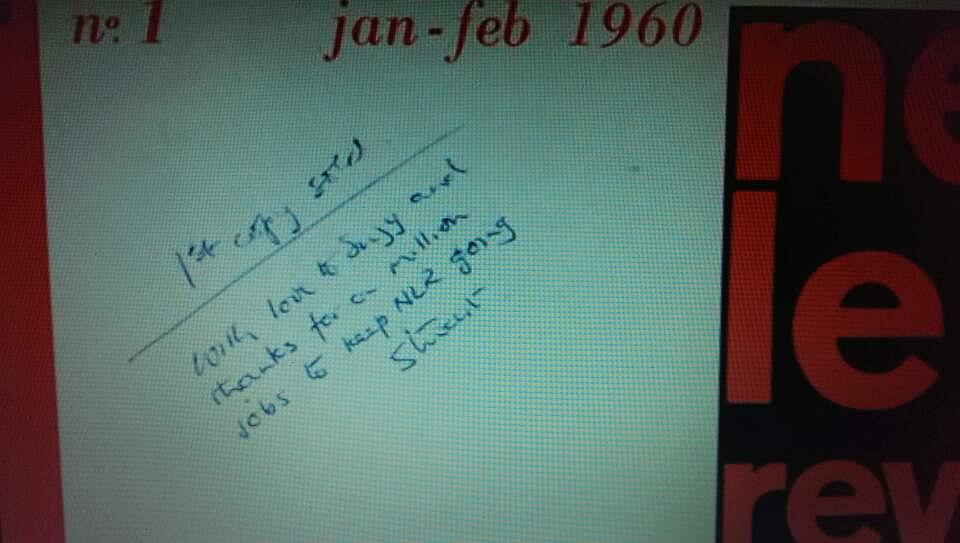 nº 1 jan-feb 1960
1st copy
With love to Suzy and
thanks for a million
jobs to keep NLR going
Stuart
ne
le
rev